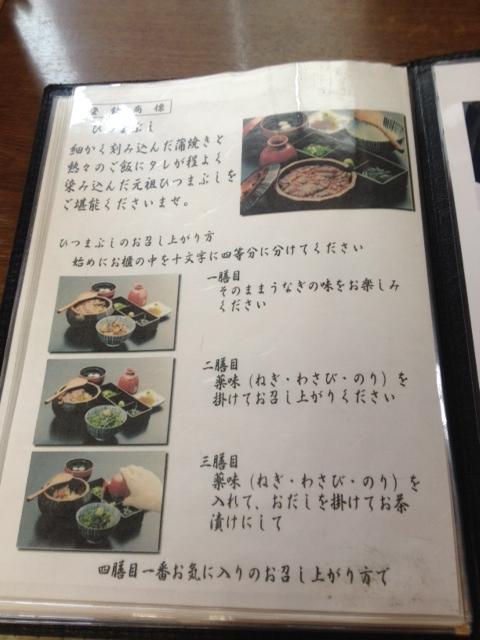 登録商標
ひつまぶし
細かく刻み込んだ蒲焼きと
熱々のご飯にタレが程よく
染み込んだ元祖ひつまぶしを
ご堪能くださいませ。
ひつまぶしのお召し上がり方
始めにお櫃の中を十文字に四等分に分けてください
一膳目
そのままうなぎの味をお楽しみ
ください
二膳目
薬味(ねぎ・わさび・のり)を
掛けてお召し上がりください
三膳目
薬味(ねぎ・わさび・のり)を
入れて、おだしを掛けてお茶
漬けにして
四膳目一番お気に入りのお召し上がり方で